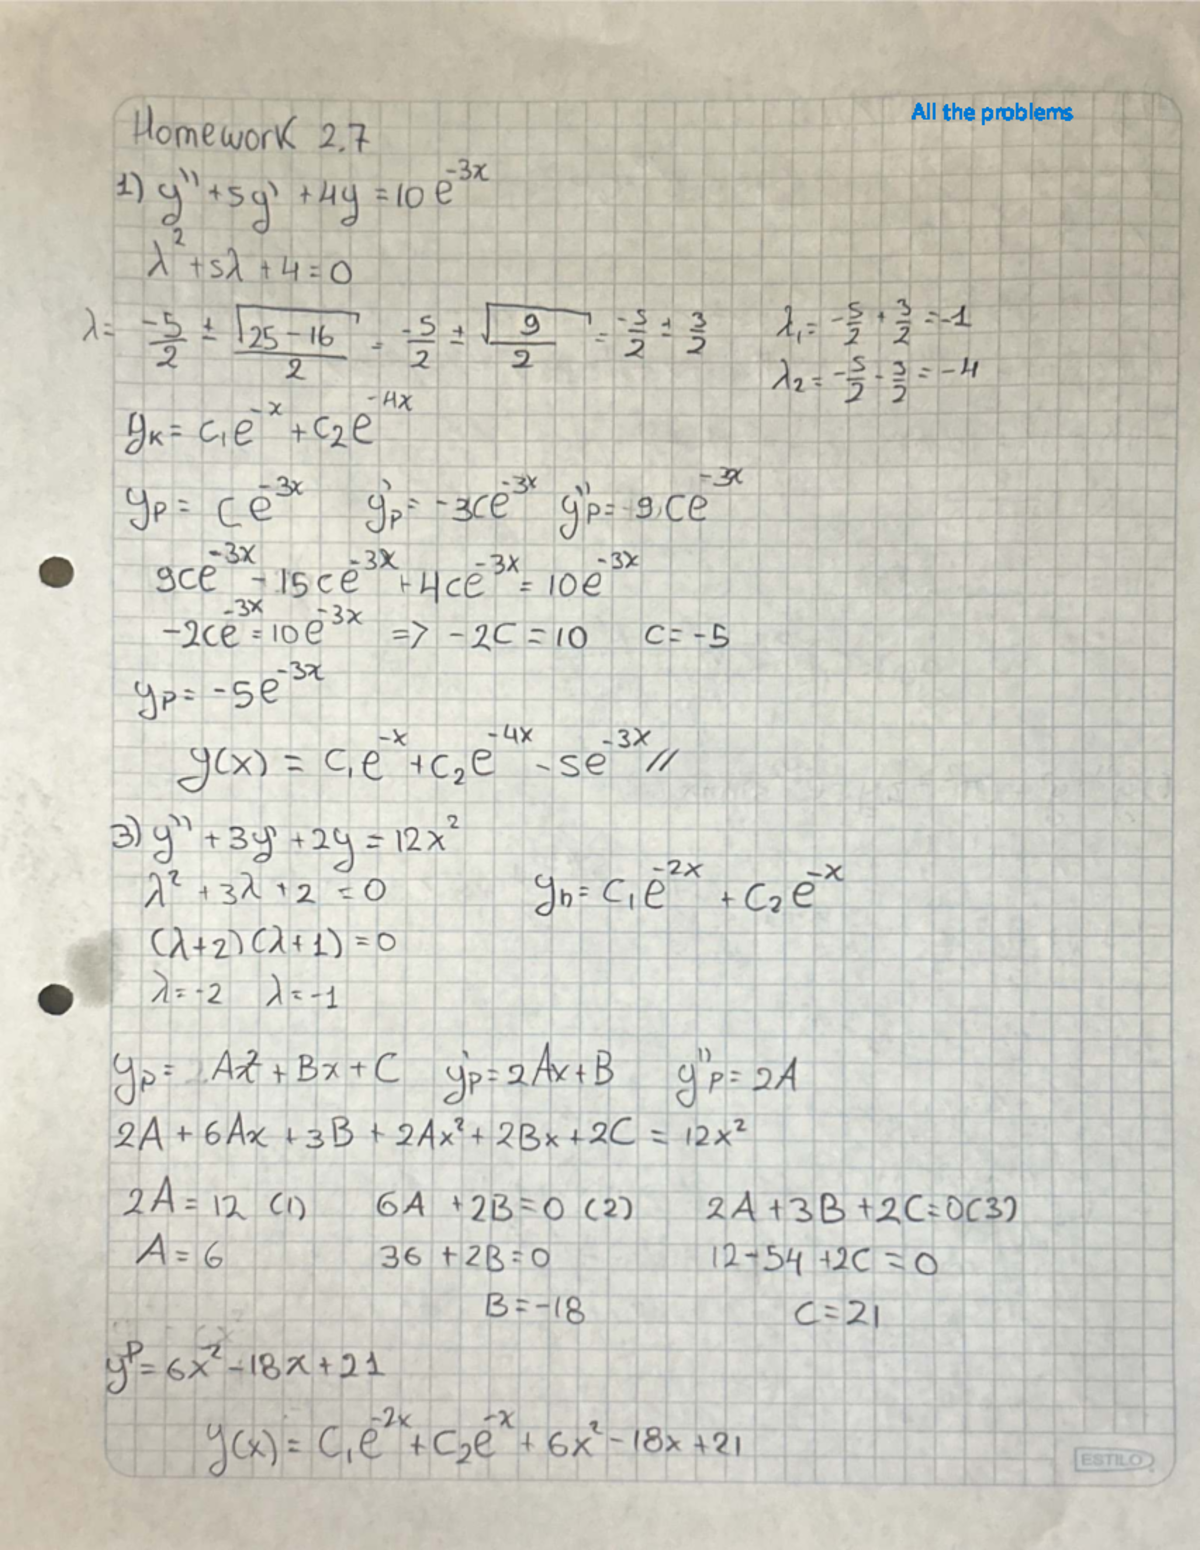 All the problems
Homework 2.7
1) y'' + 5y' + 4y = 10e^-3x
λ² + 5λ + 4 = 0
λ = -5/2 ± √25-16/2 = -5/2 ± √9/2 = -5/2 ± 3/2 λ₁ = -5/2 + 3/2 = -1
λ₂ = -5/2 - 3/2 = -4
yк = c₁e^-x + c₂e^-4x
yp = ce^-3x y'p = -3ce^-3x y''p = 9ce^-3x
9ce^-3x - 15ce^-3x + 4ce^-3x = 10e^-3x
-2ce^-3x = 10e^-3x => -2C = 10 C = -5
yp = -5e^-3x
y(x) = c₁e^-x + c₂e^-4x - 5e^-3x //
3) y'' + 3y' + 2y = 12x²
λ² + 3λ + 2 = 0 yh = C₁e^-2x + C₂e^-x
(λ+2)(λ+1) = 0
λ = -2 λ = -1
yp = Ax² + Bx + C y'p = 2Ax + B y''p = 2A
2A + 6Ax + 3B + 2Ax² + 2Bx + 2C = 12x²
2A = 12 (1) 6A + 2B = 0 (2) 2A + 3B + 2C = 0 (3)
A = 6 36 + 2B = 0 12 - 54 + 2C = 0
B = -18 C = 21
yp = 6x² - 18x + 21
y(x) = C₁e^-2x + C₂e^-x + 6x² - 18x + 21
ESTILO